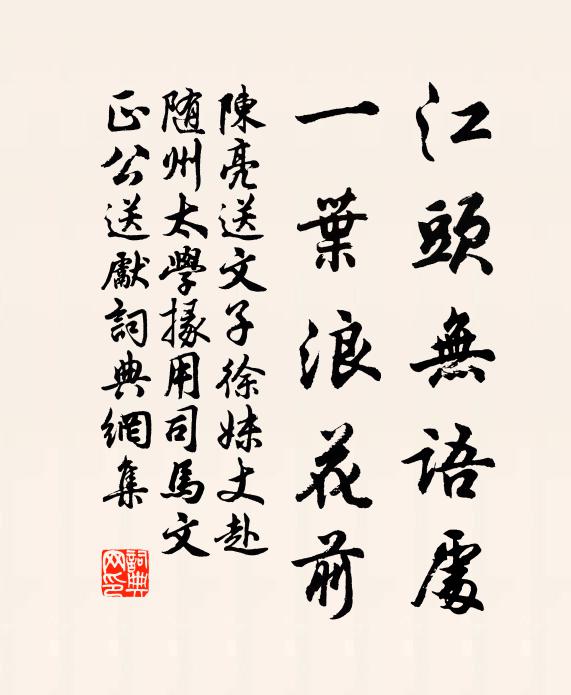 江頭無語處
一葉浪花前
陳亮送文子徐妹丈赴
随州太學掾用司馬文
正公送獻詞典網集
詞典网印